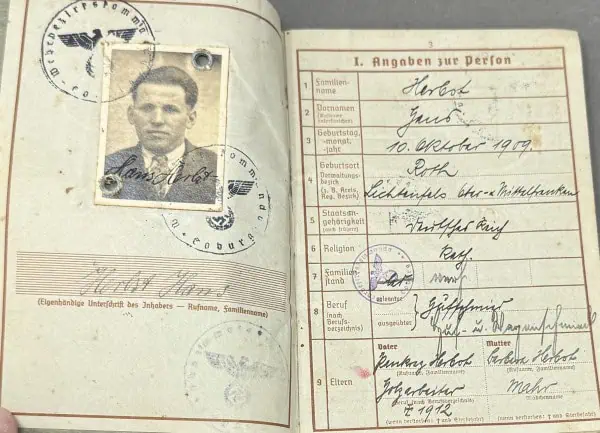 Wehrbezirkskommando
Coburg
Hans Herbst
Coburg
Herbst Hans
(Eigenhändige Unterschrift des Inhabers — Rufname, Familienname)
3
I. Angaben zur Person
1 Familien-
name
Herbst
2 Vornamen
(Rufname
unterstreichen)
Hans
3 Geburtstag,
-monat,
-jahr
10. Oktober 1909
4 Geburtsort
Verwaltungs-
bezirk
(z. B. Kreis,
Reg. Bezirk)
Roth
Lichtenfels Ober- u Mittelfranken
5 Staatsan-
gehörigkeit
(auch frühere)
Deutsches Reich
6 Religion
Kath.
7 Familien-
stand
led verh
8 Beruf
(nach
Berufs-
verzeichnis)
erlernter
ausgeübter
Hufschmied
Huf- u. Wagenschmied
9 Eltern
Vater
Mutter
Herbst
Barbara Herbst
(Rufname, Familienname)
(Rufname, Familienname)
Holzarbeiter
Mahr
(Beruf (nach Berufsverzeichnis)
(Mädchenname)
† 1912
(wenn verstorben: † und Sterbejahr)
(wenn verstorben: † und Sterbejahr)